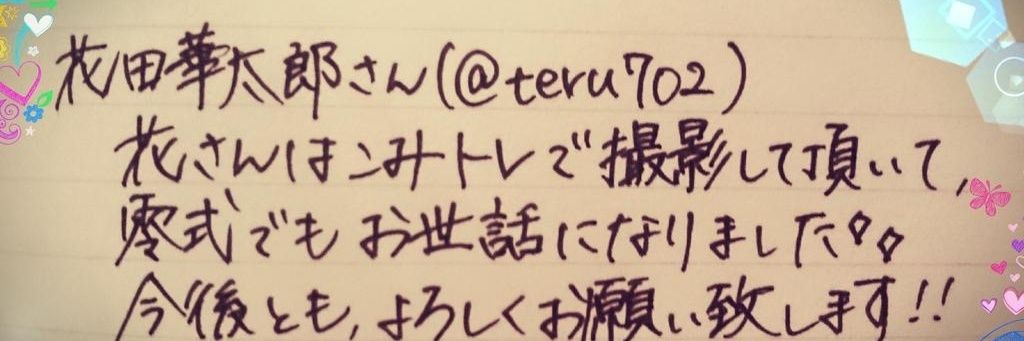 花田華太郎さん(@teru702)
花さんはこみトレで撮影して頂いて、
零式でもお世話になりました。。
今後とも、よろしくお願い致します!!